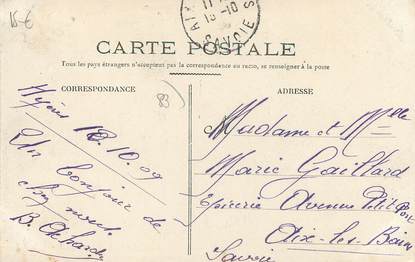 15 €
11
13-10
SAVOIE
CARTE POSTALE
Tous les pays étrangers n'acceptent pas la correspondance au recto, se renseigner à la poste
CORRESPONDANCE
(83)
ADRESSE
Hyères 12.10.09
Un bonjour de
chez nous.
B.
Madame et Melle
Marie Gaillard
Epicerie Avenue Petit Port
Aix-les-Bains
Savoie